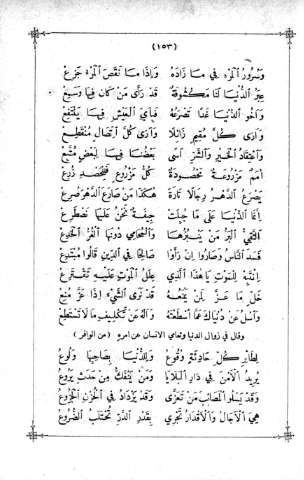 (١٥٣)
وَسُرُورُ ٱلْمَرْءِ فِي مَا زَادَهُ وَإِذَا مَا نَقَصَ ٱلْمَرْءُ جَزِعْ
عِبَرُ ٱلدُّنْيَا لَنَا مَكْشُوفَةٌ قَدْ رَأَى مَنْ كَانَ فِيهَا وَسَمِعْ
وَأَخُو ٱلدُّنْيَا غَدًا تَصْرَعُهُ فَبِأَيِّ ٱلْعَيْشِ فِيهَا يَنْتَفِعْ
وَأَرَى كُلَّ مُقِيمٍ زَائِلًا وَأَرَى كُلَّ ٱتِّصَالٍ مُنْقَطِعْ
وَٱعْتِقَادُ ٱلْخَيْرِ وَٱلشَّرِّ أُسًى بَعْضُنَا فِيهَا لِبَعْضٍ مُتَّبِعْ
أُمَمٌ مَزْرُوعَةٌ مَحْصُودَةٌ كُلُّ مَزْرُوعٍ فَلِلْحَصْدِ زُرِعْ
يَصْرَعُ ٱلدَّهْرُ رِجَالًا تَارَةً هٰكَذَا مَنْ صَارَعَ ٱلدَّهْرَ صُرِعْ
إِنَّمَا ٱلدُّنْيَا عَلَى مَا جُبِلَتْ جِيفَةٌ نَحْنُ عَلَيْهَا نَصْطَرِعْ
ٱلتَّقِيُّ ٱلْبَرُّ مَنْ يَنْبِذُهَا وَٱلْمُحَامِي دُونَهَا ٱلْغِرُّ ٱلْخَدِعْ
فَسَدَ ٱلنَّاسُ وَصَارُوا إِنْ رَأَوْا صَالِحًا فِي ٱلدِّينِ قَالُوا مُبْتَدِعْ
إِنْتَبِهْ لِلْمَوْتِ يَا هٰذَا ٱلَّذِي عِلَلُ ٱلْمَوْتِ عَلَيْهِ تَقْتَرِعْ
خَلِّ مَا عَزَّ لِمَنْ يَمْنَعُهُ قَدْ تَرَى ٱلشَّيْءَ إِذَا عَزَّ مُنِعْ
وَٱسْلُ عَنْ دُنْيَاكَ عَمَّا ٱسْطَعْتَهُ وَٱلْهُ عَنْ تَكْلِيفِ مَا لَا تَسْتَطِعْ
وقال في زوال الدنيا وتعامي الانسان عن امرهِ (من الوافر)
لِطَائِرِ كُلِّ حَادِثَةٍ وُقُوعُ وَلِلدُّنْيَا بِصَاحِبِهَا وُلُوعُ
يُرِيدُ ٱلْأَمْنَ فِي دَارِ ٱلْبَلَايَا وَمَنْ يَنْفَكُّ مِنْ حَدَثٍ يَرُوعُ
وَقَدْ يَسْلُو ٱلْمَصَائِبَ مَنْ تَعَزَّى وَقَدْ يَزْدَادُ فِي ٱلْحُزْنِ ٱلْجَزُوعُ
هِيَ ٱلْآجَالُ وَٱلْأَقْدَارُ تَجْرِي بِقَدْرِ ٱلدَّرِّ تُحْتَلَبُ ٱلضُّرُوعُ